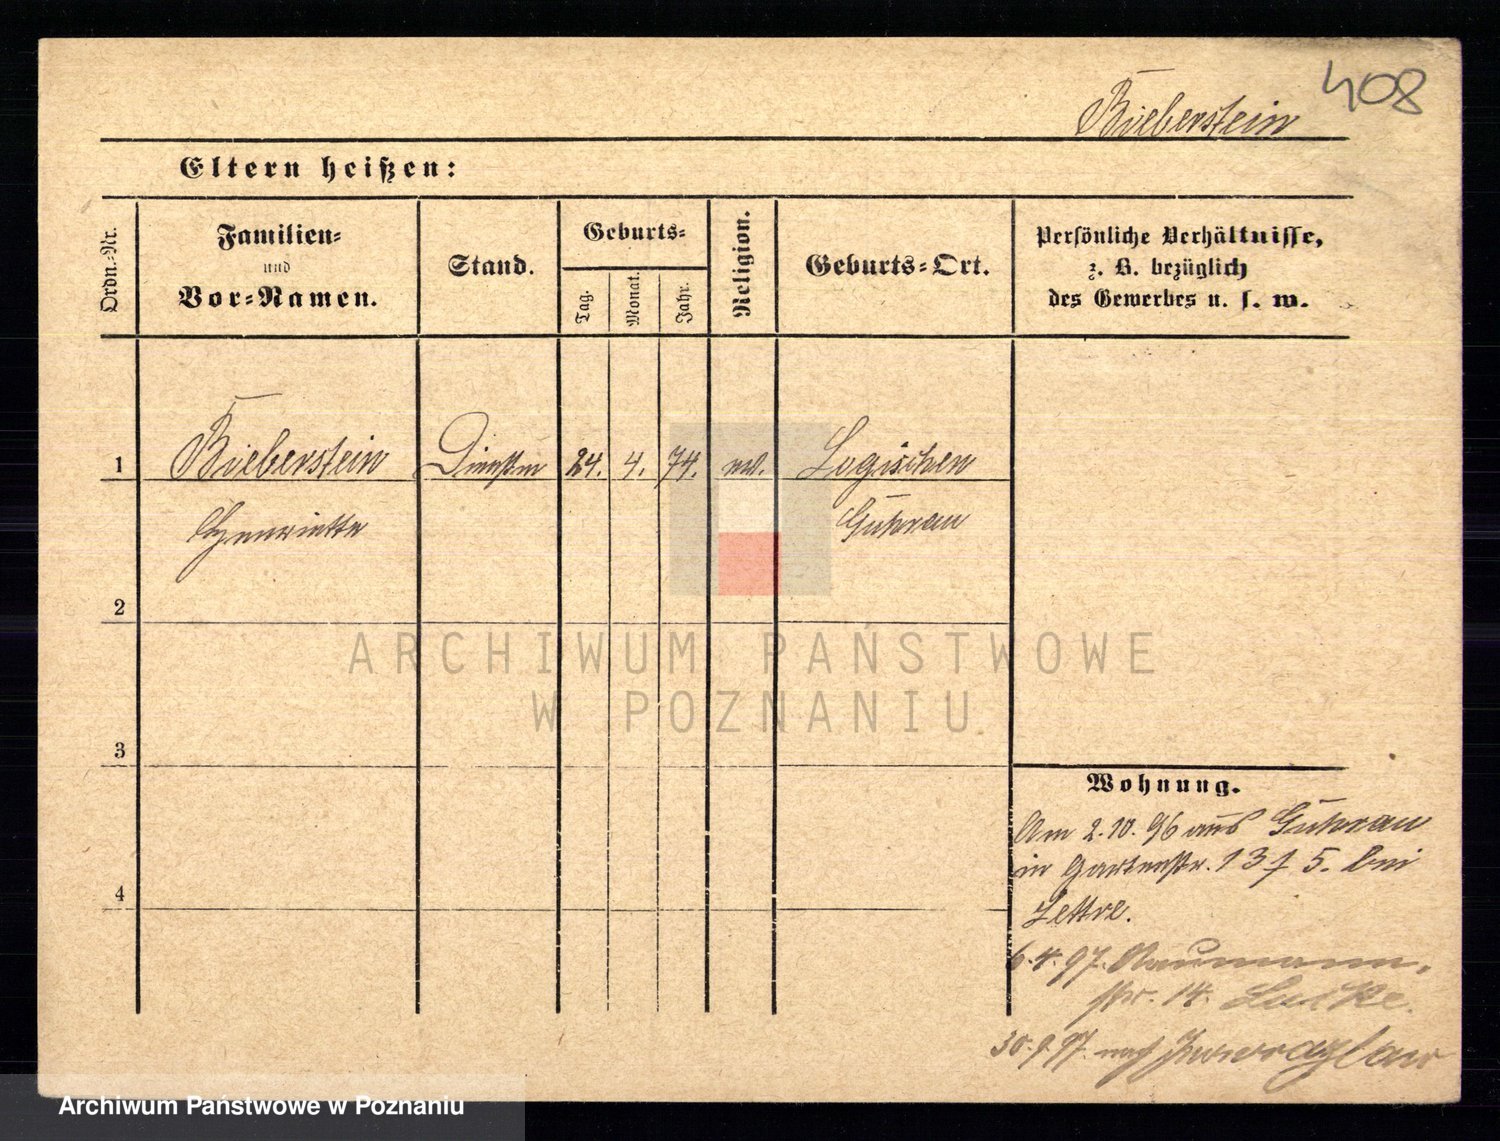 408
Bieberstein
Eltern heißen:
Ordn.-Nr.
Familien-
und
Vor-Namen.
Stand.
Geburts-
Tag.
Monat.
Jahr.
Religion.
Geburts-Ort.
Persönliche Verhältnisse,
z. B. bezüglich
des Gewerbes u. s. w.
1 Bieberstein 24. 4. 74. Logischen
Henriette Guhrau
2
3
4
ARCHIWUM PAŃSTWOWE
W POZNANIU
Wohnung.
Am 2.10.96 aus Guhrau
in Gartenstr. 13 5. bei
Zettre.
6.4.97. Naumann-
str. 14. Lucke.
30.9.97. nach Inowrazlaw
Archiwum Państwowe w Poznaniu